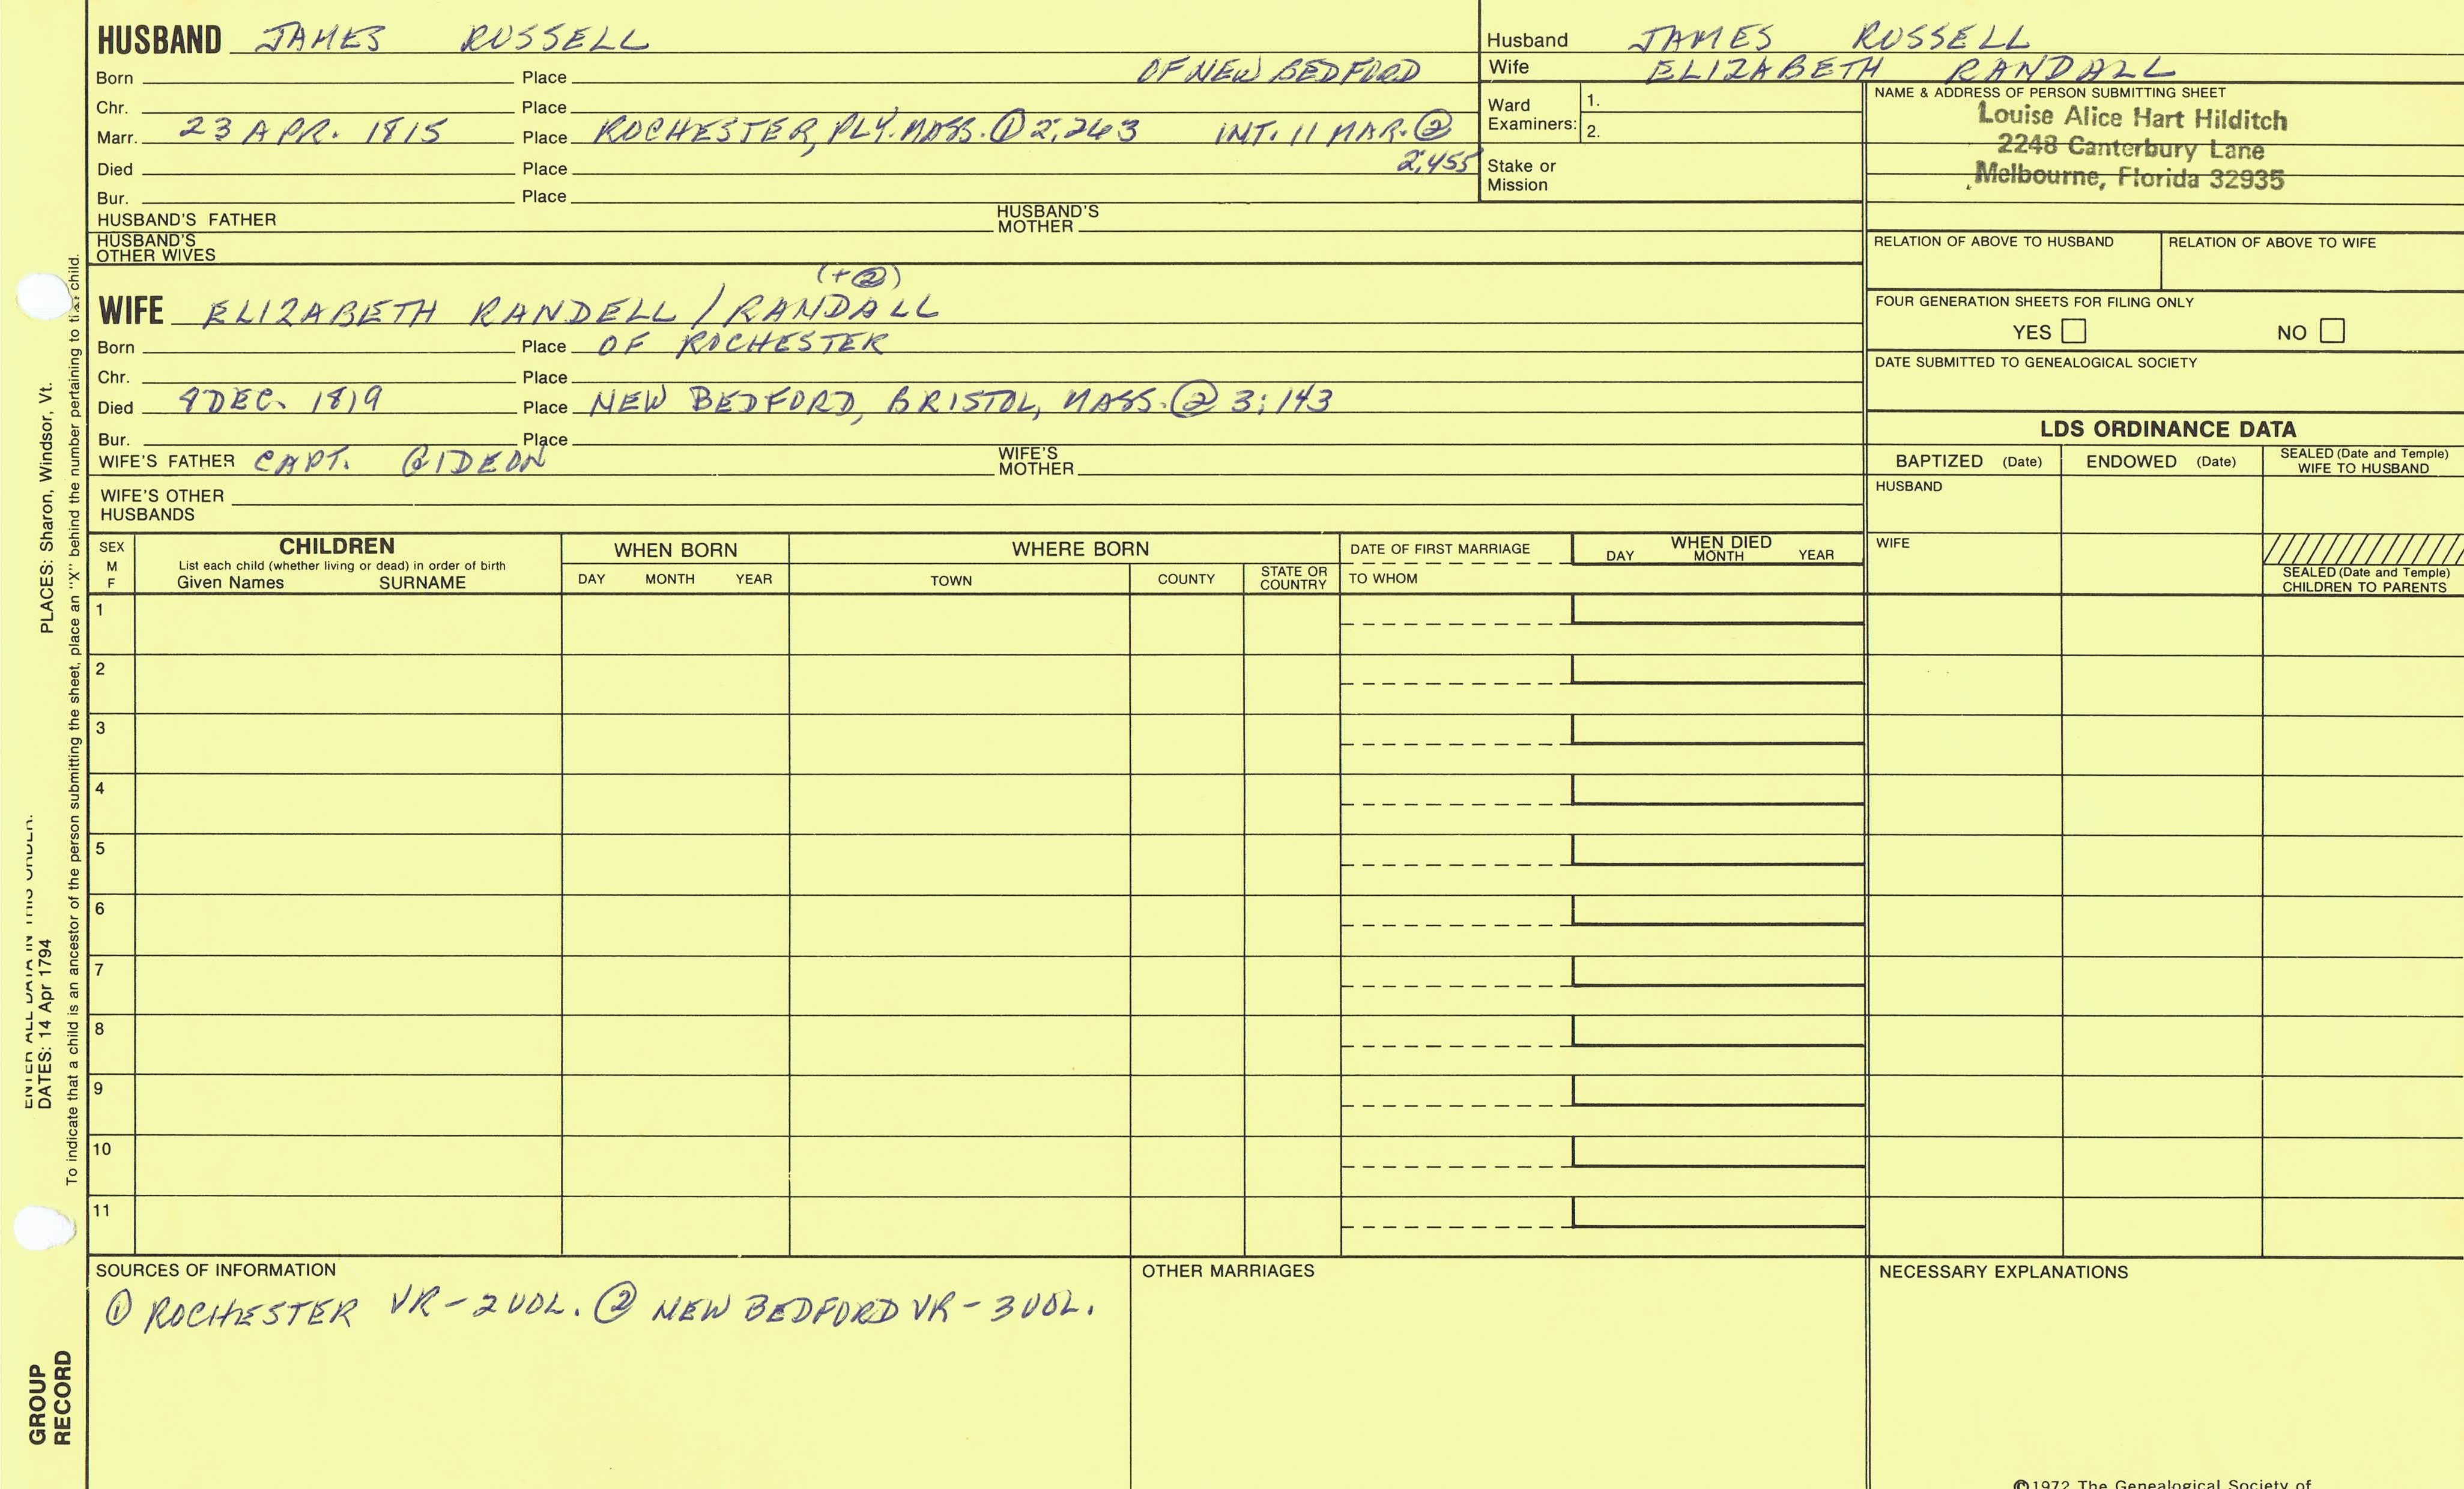 HUSBAND JAMES RUSSELL
Born Place OF NEW BEDFORD
Chr. Place
Marr. 23 APR. 1815 Place ROCHESTER, PLY. MASS. ① 2:263 INT. 11 MAR. ②
2:455
Died Place
Bur. Place
HUSBAND'S FATHER HUSBAND'S MOTHER
HUSBAND'S OTHER WIVES
(+②)
WIFE ELIZABETH RANDELL / RANDALL
Born Place OF ROCHESTER
Chr. Place
Died Place NEW BEDFORD, BRISTOL, MASS. ② 3:143
DEC. 1819
Bur. Place
WIFE'S FATHER CAPT. GIDEON WIFE'S MOTHER
WIFE'S OTHER HUSBANDS
Husband JAMES RUSSELL
Wife ELIZABETH RANDALL
Ward Examiners: 1.
2.
Stake or Mission
NAME & ADDRESS OF PERSON SUBMITTING SHEET
Louise Alice Hart Hilditch
2248 Canterbury Lane
Melbourne, Florida 32935
RELATION OF ABOVE TO HUSBAND RELATION OF ABOVE TO WIFE
FOUR GENERATION SHEETS FOR FILING ONLY
YES NO
DATE SUBMITTED TO GENEALOGICAL SOCIETY
LDS ORDINANCE DATA
BAPTIZED (Date) ENDOWED (Date) SEALED (Date and Temple) WIFE TO HUSBAND
HUSBAND
WIFE
SEALED (Date and Temple)
CHILDREN TO PARENTS
SEX M F
CHILDREN
List each child (whether living or dead) in order of birth
Given Names SURNAME
WHEN BORN
DAY MONTH YEAR
WHERE BORN
TOWN COUNTY STATE OR COUNTRY
DATE OF FIRST MARRIAGE
TO WHOM
WHEN DIED
DAY MONTH YEAR
1
2
3
4
5
6
7
8
9
10
11
SOURCES OF INFORMATION
① ROCHESTER VR - 2 VOL. ② NEW BEDFORD VR - 3 VOL.
OTHER MARRIAGES
NECESSARY EXPLANATIONS
©1972 The Genealogical Society of
ENTER ALL DATA IN THIS ORDER:
DATES: 14 Apr 1794 PLACES: Sharon, Windsor, Vt.
To indicate that a child is an ancestor of the person submitting the sheet, place an "X" behind the number pertaining to that child.
GROUP
RECORD